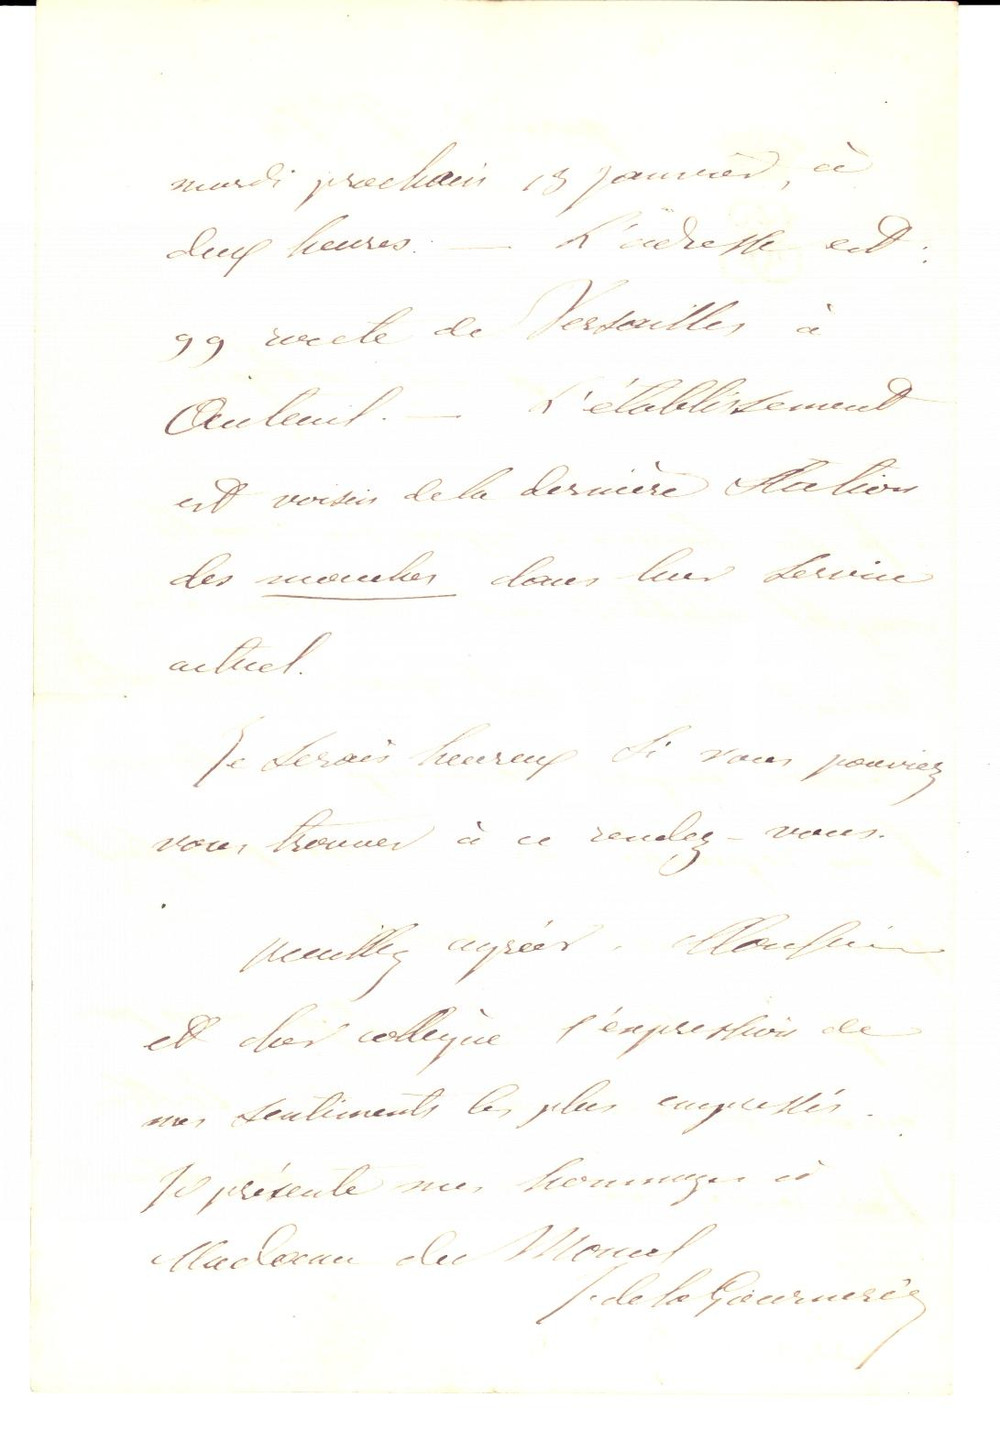 mardi prochain 13 janvier, à
deux heures. — L'adresse est :
99 route de Versailles à
Auteuil. — L'établissement
est voisin de la dernière station
des mouches dans leur service
actuel.
Je serais heureux si vous pouviez
vous trouver à ce rendez-vous.
Veuillez agréer, Monsieur
et cher collègue l'expression de
mes sentiments les plus empressés.
Je présente mes hommages à
Madame du Moncel
J. de la Gournerie